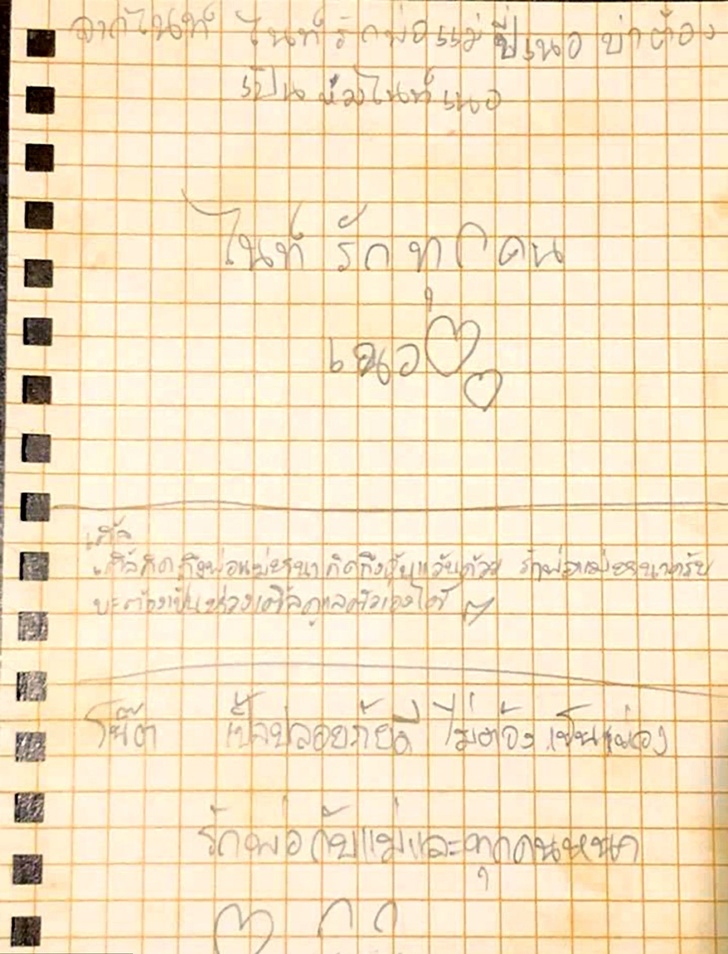 จากไนท์ ไนท์รักพ่อแม่ ปี่เนอ บ่าต้อง
เป็นห่วงไนท์เนอ
ไนท์ รัก ทุกคน
เนอ
เติ้ล
เติ้ลคิดถึงพ่อแม่ คิดถึง ด้วย รักพ่อแม่ ครับ
บะต้องเป็นหวงเติ้ลดูแลตัวเองได้
โน๊ต เป็ลปลอยภัยดี ไม่ต้องเป็นหม่อง
รักพ่อกับแม่และทุกคนหนา